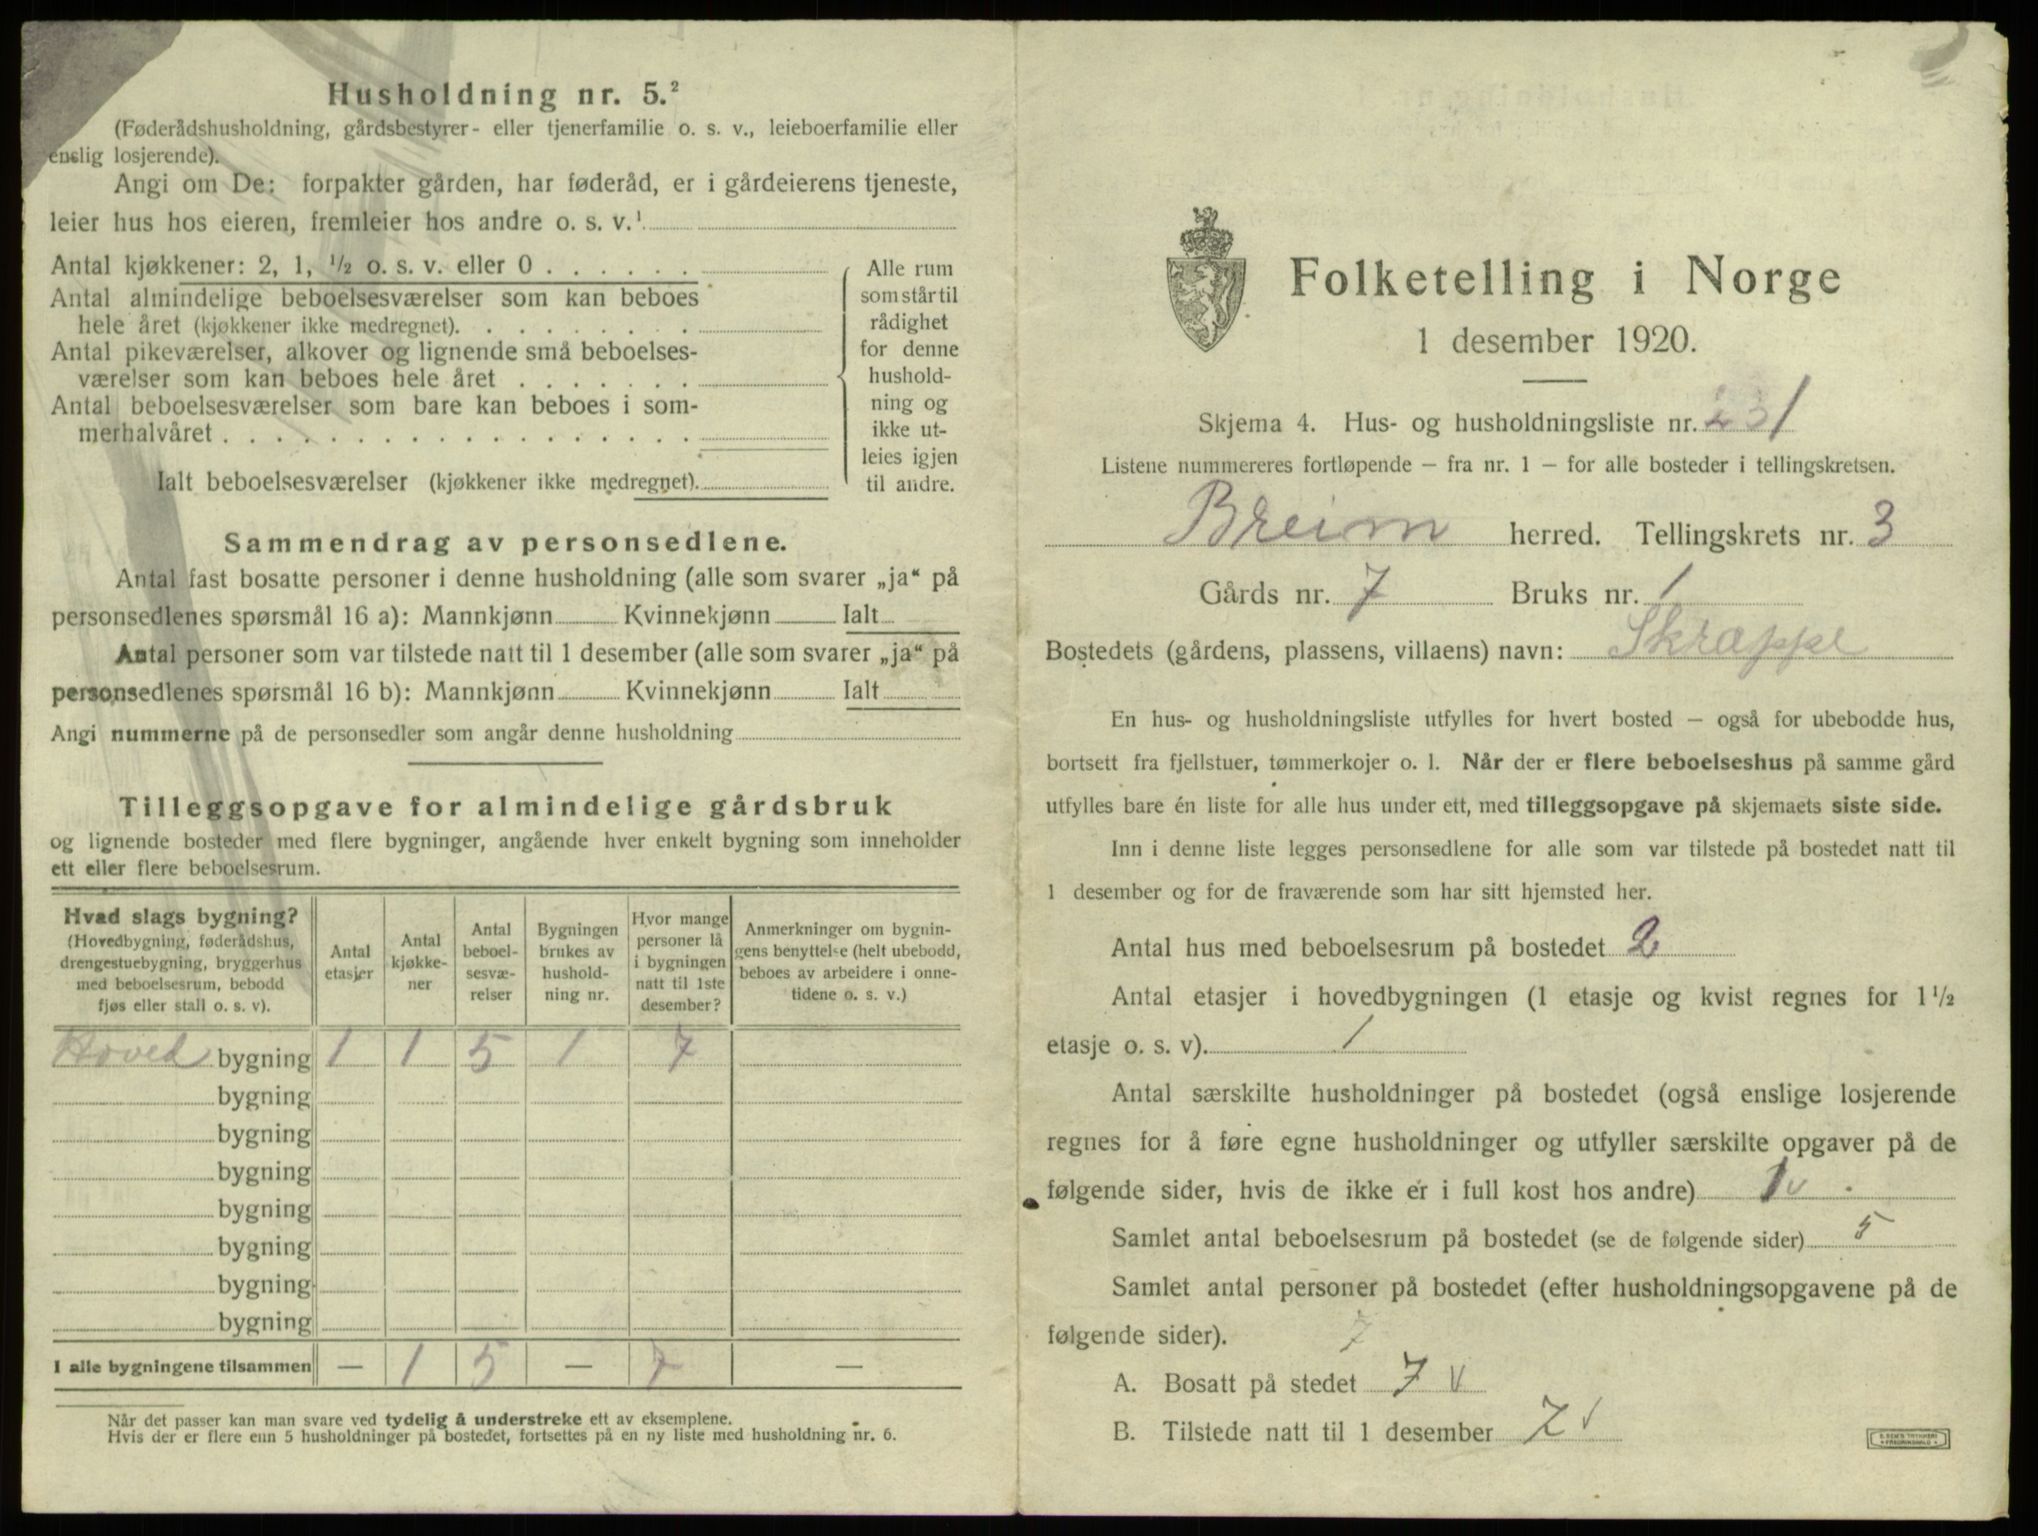 Husholdning nr. 5.²
(Føderådshusholdning, gårdsbestyrer- eller tjenerfamilie o. s. v., leieboerfamilie eller
enslig losjerende).
Angi om De: forpakter gården, har føderåd, er i gårdeierens tjeneste,
leier hus hos eieren, fremleier hos andre o. s. v.¹
Antal kjøkkener: 2, 1, ½ o. s. v. eller 0 . . . . . .
Antal almindelige beboelsesværelser som kan beboes
hele året (kjøkkener ikke medregnet). . . . . . . . .
Antal pikeværelser, alkover og lignende små beboelses-
værelser som kan beboes hele året . . . . . . .
Antal beboelsesværelser som bare kan beboes i som-
merhalvåret . . . . . . . . . . . . . . . . . .
Ialt beboelsesværelser (kjøkkener ikke medregnet).
Alle rum
som står til
rådighet
for denne
hushold-
ning og
ikke ut-
leies igjen
til andre.
Sammendrag av personsedlene.
Antal fast bosatte personer i denne husholdning (alle som svarer „ja“ på
personsedlenes spørsmål 16 a): Mannkjønn Kvinnekjønn Ialt
Antal personer som var tilstede natt til 1 desember (alle som svarer „ja“ på
personsedlenes spørsmål 16 b): Mannkjønn Kvinnekjønn Ialt
Angi nummerne på de personsedler som angår denne husholdning
Tilleggsopgave for almindelige gårdsbruk
og lignende bosteder med flere bygninger, angående hver enkelt bygning som inneholder
ett eller flere beboelsesrum.
Hvad slags bygning?
(Hovedbygning, føderådshus,
drengestuebygning, bryggerhus
med beboelsesrum, bebodd
fjøs eller stall o. s. v).
Antal
etasjer
Antal
kjøkke-
ner
Antal
beboel-
sesvæ-
relser
Bygningen
brukes av
hushold-
ning nr.
Hvor mange
personer lå
i bygningen
natt til 1ste
desember?
Anmerkninger om bygnin-
gens benyttelse (helt ubebodd,
beboes av arbeidere i onne-
tidene o. s. v.)
Hoved bygning 1 1 5 1 7
bygning
bygning
bygning
bygning
bygning
bygning
bygning
I alle bygningene tilsammen — 1 5 — 7 —
Når det passer kan man svare ved tydelig å understreke ett av eksemplene.
Hvis der er flere enn 5 husholdninger på bostedet, fortsettes på en ny liste med husholdning nr. 6.
Folketelling i Norge
1 desember 1920.
Skjema 4. Hus- og husholdningsliste nr. 231
Listene nummereres fortløpende — fra nr. 1 — for alle bosteder i tellingskretsen.
Breim herred. Tellingskrets nr. 3
Gårds nr. 7 Bruks nr. 1
Bostedets (gårdens, plassens, villaens) navn: Skræppe
En hus- og husholdningsliste utfylles for hvert bosted — også for ubebodde hus,
bortsett fra fjellstuer, tømmerkojer o. l. Når der er flere beboelseshus på samme gård
utfylles bare én liste for alle hus under ett, med tilleggsopgave på skjemaets siste side.
Inn i denne liste legges personsedlene for alle som var tilstede på bostedet natt til
1 desember og for de fraværende som har sitt hjemsted her.
Antal hus med beboelsesrum på bostedet 2
Antal etasjer i hovedbygningen (1 etasje og kvist regnes for 1½
etasje o. s. v). 1
Antal særskilte husholdninger på bostedet (også enslige losjerende
regnes for å føre egne husholdninger og utfyller særskilte opgaver på de
følgende sider, hvis de ikke er i full kost hos andre) 1 v
Samlet antal beboelsesrum på bostedet (se de følgende sider) 5
Samlet antal personer på bostedet (efter husholdningsopgavene på de
følgende sider). 7
A. Bosatt på stedet 7 v
B. Tilstede natt til 1 desember 7 v